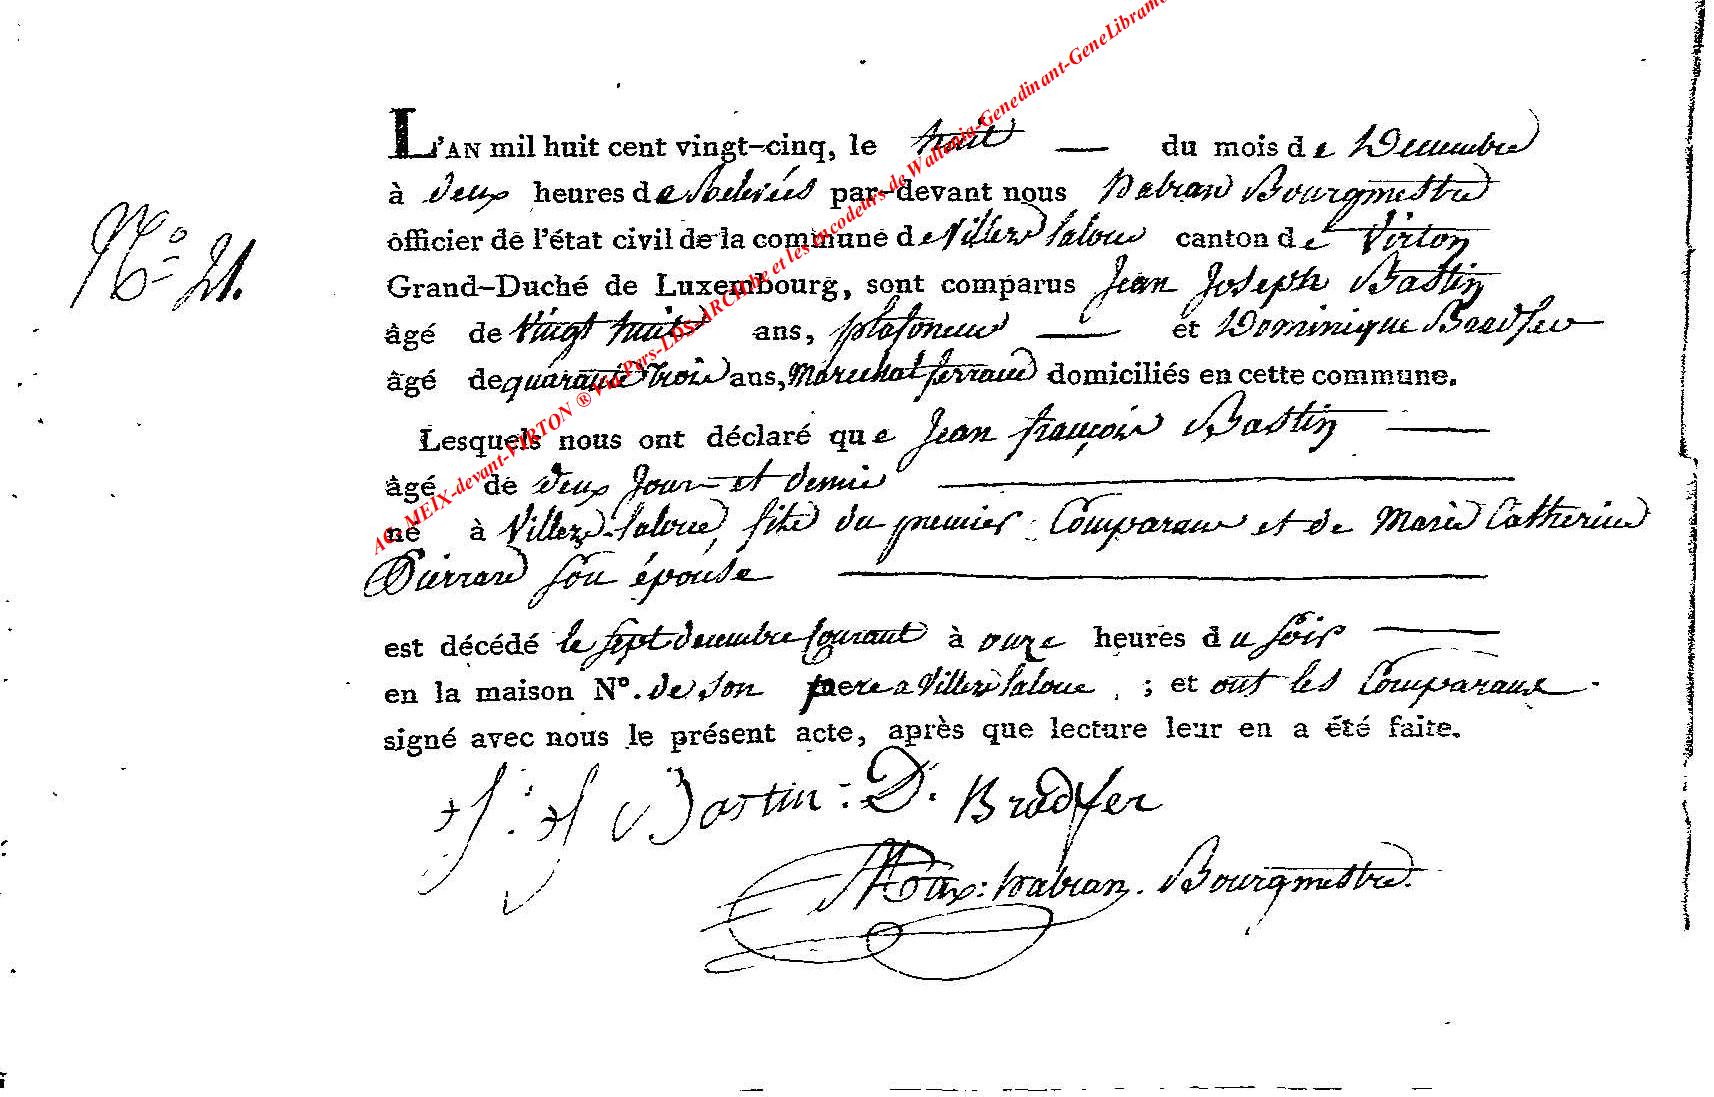 L'AN mil huit cent vingt-cinq, le huit — du mois de Decembre
à deux heures de Relevées par-devant nous habran Bourgmestre
N° 21.
officier de l'état civil de la commune de Villers laloue canton de Virton
Grand-Duché de Luxembourg, sont comparus Jean Joseph Bastin
âgé de vingt huit ans, plafoneur — et Dominique Bradfer
âgé de quarante trois ans, Marechal ferrand domiciliés en cette commune.
Lesquels nous ont déclaré que Jean françois Bastin —
âgé de deux Jour et demie —
né à Villers-laloue, fils du premier Comparant et de Marie Catherine
Pierrard son épouse —
est décédé le sept decembre Courant à onze heures du soir —
en la maison N°. de son pere a Villers laloue ; et ont les Comparans
signé avec nous le présent acte, après que lecture leur en a été faite.
J. J Bastin : D. Bradfer
Max: habran. Bourgmestre.
AG-MEIX-devant-VIRTON ® Via Pers-LDS-ARCH.be et les encodeurs de Wallonia-Genedinant-GeneLibram